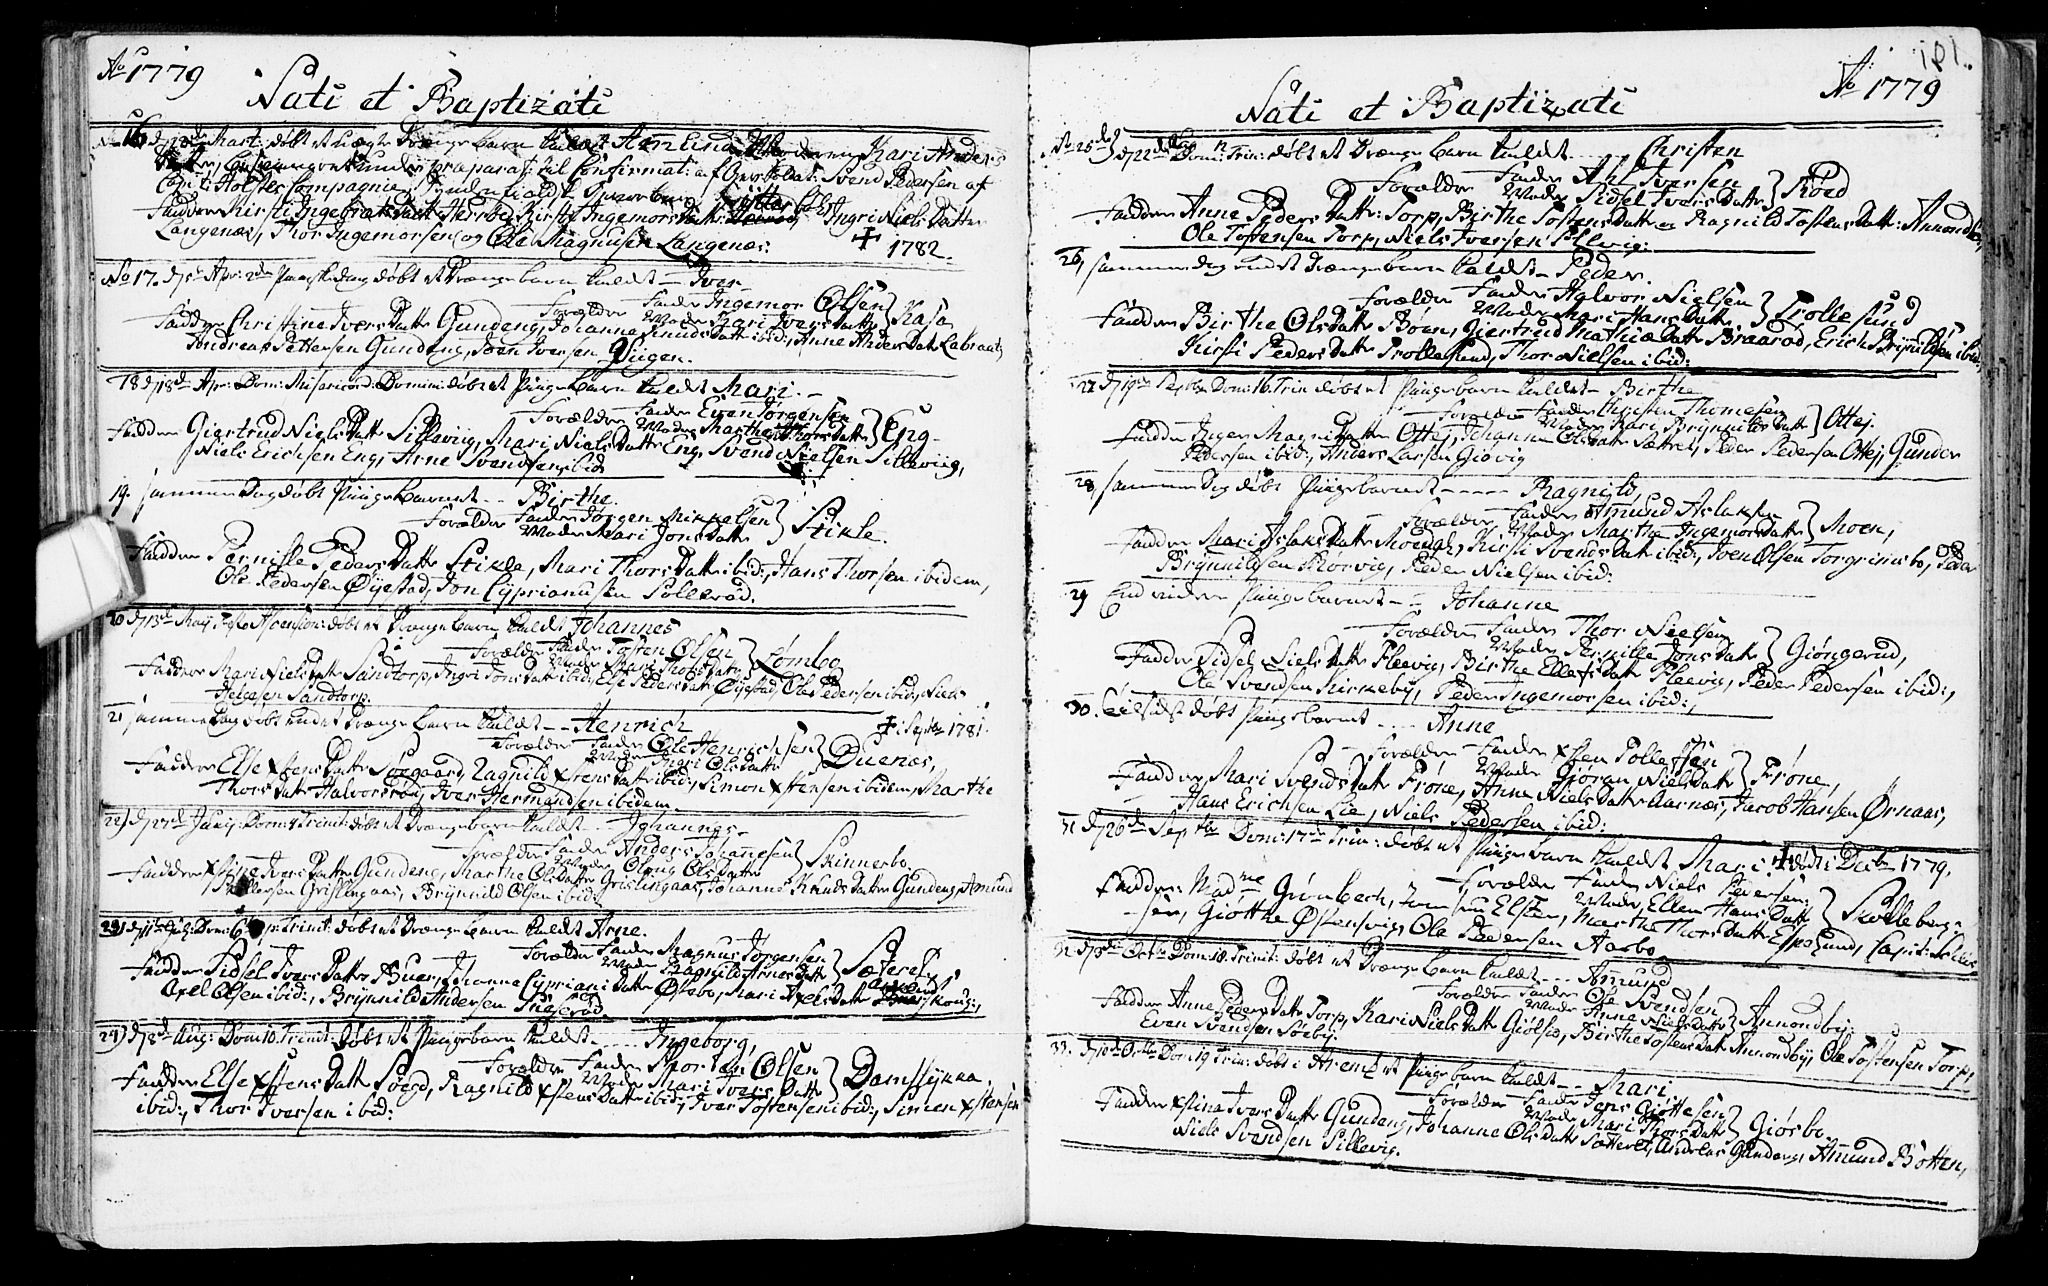 Ao 1779
Nati et Baptizati
No 16 d 13de Mart: døbt et uægte Drænge barn kaldet Amlinus Moderen Kari Anders
til Confirmat: af Svend Pedersen af
Capt: Holsts Compagnie
Faddere Kirsti Ingebrets Datt Herrebø, Kirsti Ingemors Datt Ingri Niels Datter
Langenæs, Thor Ingemorsen og Ole Magnusen Langenæs: ✝ 1782.
No 17. d 5te Apr: 2den Paaskedag døbt et Drænge barn kaldet - Iver
Forældre Fader Ingemor Olsen
Moder Kari Ivers Datter } Kasa
Faddere Christine Ivers Datt Gundeng, Johanne Knuds Datt ibid:, Anne Anders Datt Labraat,
Andreas Pettersen Gundeng, Joen Iversen Giigen.
18 d 18de Apr: Dom: Misericord: Domini døbt et Piige barn kaldt Mari. -
Forældre Fader Even Jørgensen
Moder Marthe Thors Datt } Eng
Faddere Giertrud Niels Datt Silleviig, Mari Niels Datt Eng, Svend Nielsen Silleviig,
Niels Erichsen Eng, Arne Svendsen ibid
19. Samme Dag døbt Piigebarnet - - Birthe.
Forældre Fader Jørgen Mikkelsen
Moder Mari Jons Datt } Stikle.
Faddere Pernille Peders Datt Stikla, Mari Thors Datt ibid:, Hans Thorsen ibidem,
Ole Pedersen Øyestad, Jon Cyprianusen Pollerød.
20 d 13de Maij Festo Ascension: døbt et Drænge barn kaldt Johannes
Forældre Fader Tosten Olsen
Moder Mari Thors Datt } Lømbo
Faddere Mari Niels Datt Sandtorp, Ingri Jons Datt ibid, Else Peders Datt Øyestad, Ole Pedersen ibid, Niels
Helgesen Sandtorp.
21 Samme Dag døbt endet Drænge barn kaldet - - Henrich ✝ i Septbr 1781.
Forældre Fader Ole Henrichsen
Moder Ingri Ols Datt } Duenæs,
Faddere Else Xstens Datt Søegaard, Ragnild Xstens Datt ibid:, Simon Xstensen ibidem, Marthe
Thors Datt Halvorsrød, Iver Hermandsen ibidem.
22) d 27de Junij: Dom: 4 Trinit: døbt et Drænge barn kaldet - - Johannes -
Forældre Fader Anders Johannesen
Moder Olaug Ols Datter } Skinnerbo
Faddere Xstine Ivers Datt Gundeng, Marthe Ols Datt Grislingaas, Johanne Knuds Datt Gundeng, Amund
Grislingaas, Brynnild Olsen ibid:
23) d 11te Julij: Dom: 6 p: Trinit: døbt et Drænge barn kaldet Arne.
Forældre Fader Magnus Jørgensen
Moder Ragnild Arnes Datt } Sæteret
Faddere Sidsel Ivers Datt Buer, Johanne Cypriani Datt Østebo, Mari Axels Datt
Axel Olsen ibid:, Brynnild Andersen Ingerød
24) d 8de Aug: Dom: 10. Trinit: døbt et Piige barn kaldet - - - Ingeborg,
Forældre Fader Thorsten Olsen
Moder Mari Ivers Datt } Damstykka.
Faddere Else Xstens Datt Søegd, Ragnild Xstens Datt ibid:, Iver Tostensen ibid:, Simen Xstensen
ibid:, Thor Iversen ibid:
191.
Ao 1779
Nati et Baptizati
No 25 d 22de Aug Dom: 12 Trin: døbt et Drænge barn kaldet - - - Christen
Forældre Fader Iversen
Moder Sidsel Ivers Datt } Røed
Faddere Anne Peders Datt: Torp, Birthe Tostens Datt og Ragnild Tostens Datt: Annondbij,
Ole Tostensen Torp, Niels Iversen Sillevig:
26, samme dag endet Drænge barn kaldet - Peder.
Forældre Fader Halvor Nielsen
Moder Mari Hans Datt } Trollesund
Faddere Birthe Ols Datt Bøen, Giertrud Mathiæ Datt Braarød, Erich Brynnildsen ibid:
Kirsti Peders Datt Trollesund, Thor Nielsen ibid:
27 d 19de Septbr Dom: 16. Trin døbt et Piige barn kaldet - Birthe
Forældre Fader Christen Thomesen
Moder Kari Brynnilds Datt } Ottej.
Faddere Inger Magni Datter Ottej, Johanne Ols Datt Sætteret, Peder Pedersen Ottej, Gunder
Pedersen ibid:, Anders Larsen Giøvig
28, samme dag døbt Piigebarnet - - - - - Ragnild,
Forældre Fader Amund Aslaksen
Moder Marthe Ingemors Datt } Moen,
Faddere Mari Aslaks Datt Moen, Kirsti Svends Datt ibid:, Iver Olsen Torgrimsbo, Peder
Brynnildsen Thorvig, Peder Nielsen ibid:
29 End videre Piigebarnet - - Johanne
Forældre Fader Thor Nielsen
Moder Pernille Jons Datt } Giøngerud,
Faddere Sidsel Niels Datt Fleevig, Birthe Ellefs Datt Fleevig, Peder Pedersen ibid:,
Ole Svendsen Kirkeby, Peder Ingemorsen ibid:,
30. Til sidst døbt Piigebarnet - - - Anne
Forældre Fader Xsten Pollefsen
Moder Giøran Niels Datt } Frøne,
Faddere Mari Svends Datt Frøne, Anne Niels Datt Aarnæs, Jacob Hansen Ørnaas,
Hans Erichsen Lie, Niels Pedersen ibid:
31 d 26de Septbr Dom: 17de Trin: døbt et Piige barn kaldet Mari. ✝ døde i Decbr 1779.
Forældre Fader Niels Pedersen
Moder, Ellen Hans Datt } Skolleberg
Faddere: Madme Grønbech, Jomfrue Elster, Marthe Thors Datt Espelund, Capit:
Giøtthe Østensvig, Ole Pedersen Aarbo
32. d 3de Octbr Dom: 18. Trinit: døbt et Drænge barn kaldet - - - Amund
Forældre Fader Ole Svendsen
Moder Anne Niels Datt } Annondbij
Faddere Anne Peders Datt Torp, Kari Niels Datt Giølsø, Birthe Tostens Datt Annondbij, Ole Tostensen Torp,
Even Svendsen Søebij.
33. d 10de Octbr Dom 19 Trin: døbt i Aremk et Piige barn kaldet - - Mari
Forældre Fader Jens Giøttesen
Moder Mari Thors Datt } Giøsbo
Faddere Xstina Ivers Datt Gundeng, Johanne Ols Datt Sætteret, Andreas Gundeng, Amund Botten,
Niels Svendsen Sillevig.